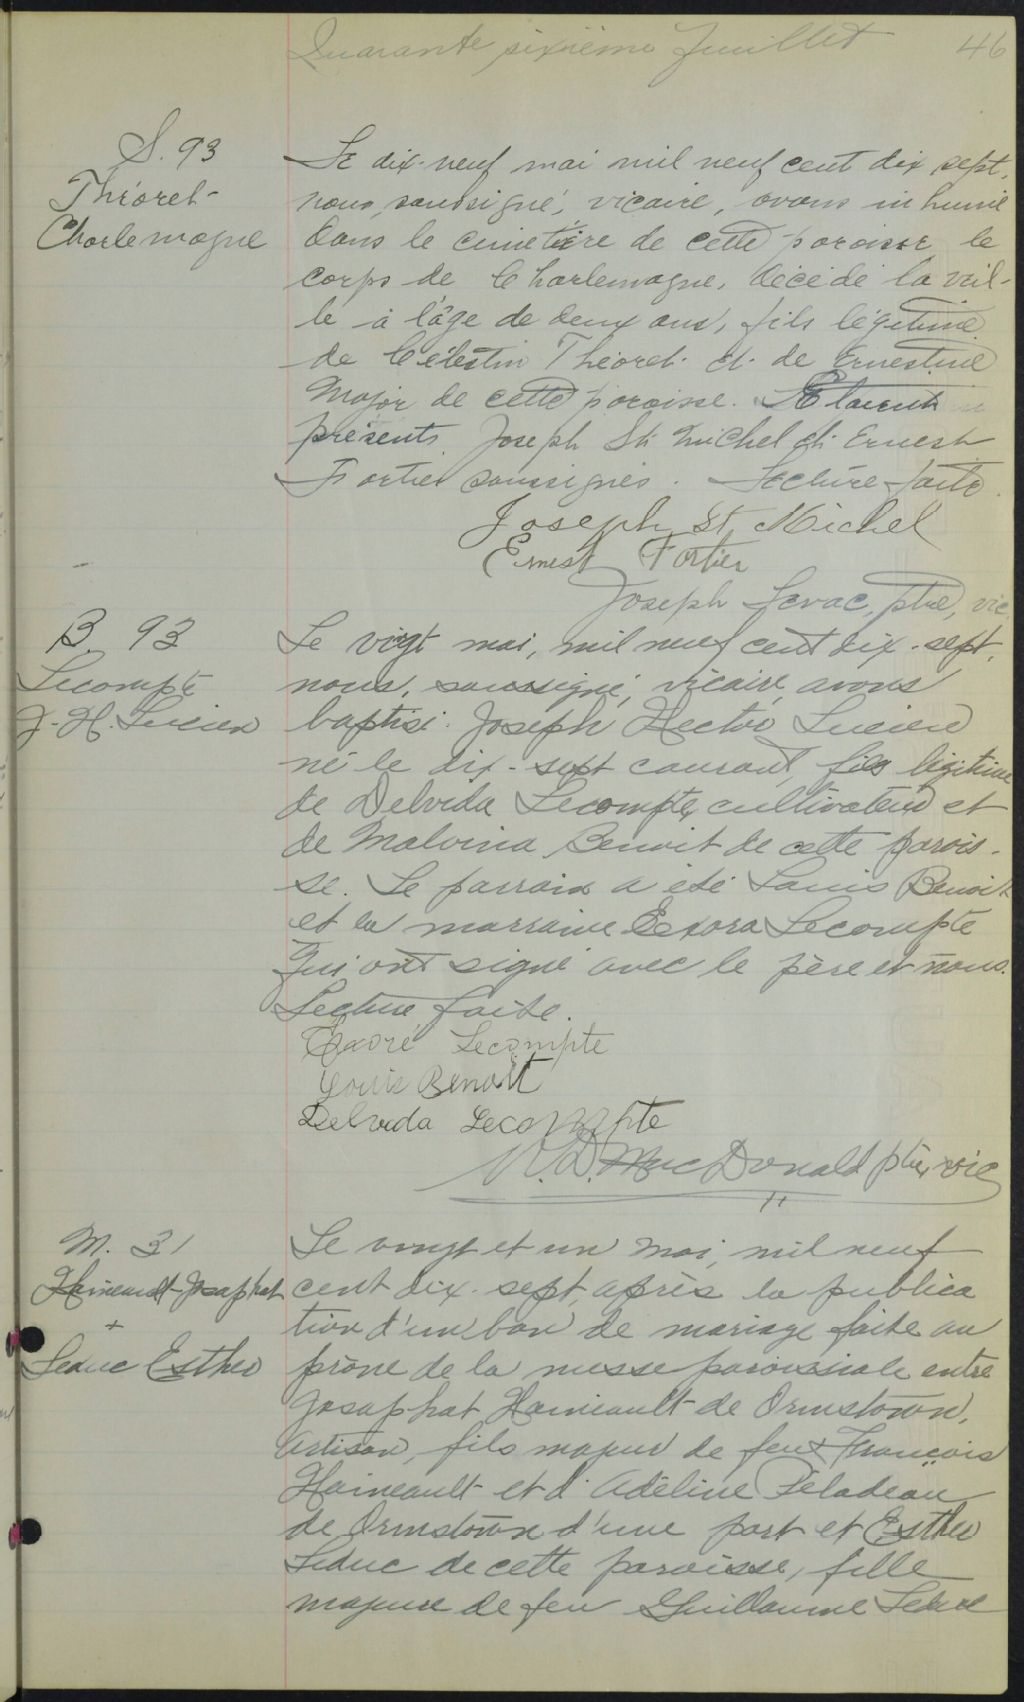 Quarante sixième Juillet 46
S. 93
Théoret
Charlemagne
Le dix-neuf mai mil neuf cent dix sept,
nous, soussigné, vicaire, avons inhumé
dans le cimetière de cette paroisse le
corps de Charlemagne, décédé la veil-
le à l'âge de deux ans, fils légitime
de Célestin Théoret et de Ernestine
Major de cette paroisse. Etaient
présents Joseph St Michel et Ernest
Fortier soussignés. Lecture faite.
Joseph St. Michel
Ernest Fortier
Joseph Levac, ptre, vic
B. 93
Lecompte
J. H. Lucien
Le vigt mai, mil neuf cent dix-sept,
nous, soussigné, vicaire avons
baptisé Joseph Hector Lucien
né le dix-sept courant, fils légitime
de Delvida Lecompte, cultivateur et
de Malvina Benoit de cette parois-
se. Le parrain a été Louis Benoit
et la marraine Exora Lecompte
qui ont signé avec le père et nous.
Lecture faite.
Exoré Lecompte
Louis Benoit
Delvida Lecompte
R. D. MacDonald ptre, vic
M. 31
Haineault Josaphat
+
Leduc Esther
Le vingt et un mai, mil neuf
cent dix-sept, après la publica
tion d'un ban de mariage faite au
prône de la messe paroissiale entre
Josaphat Haineault de Ormstown,
artisan, fils majeur de feu François
Haineault et d'Adéline Péladeau
de Ormstown d'une part et Esther
Leduc de cette paroisse, fille
majeure de feu Guillaume Leduc